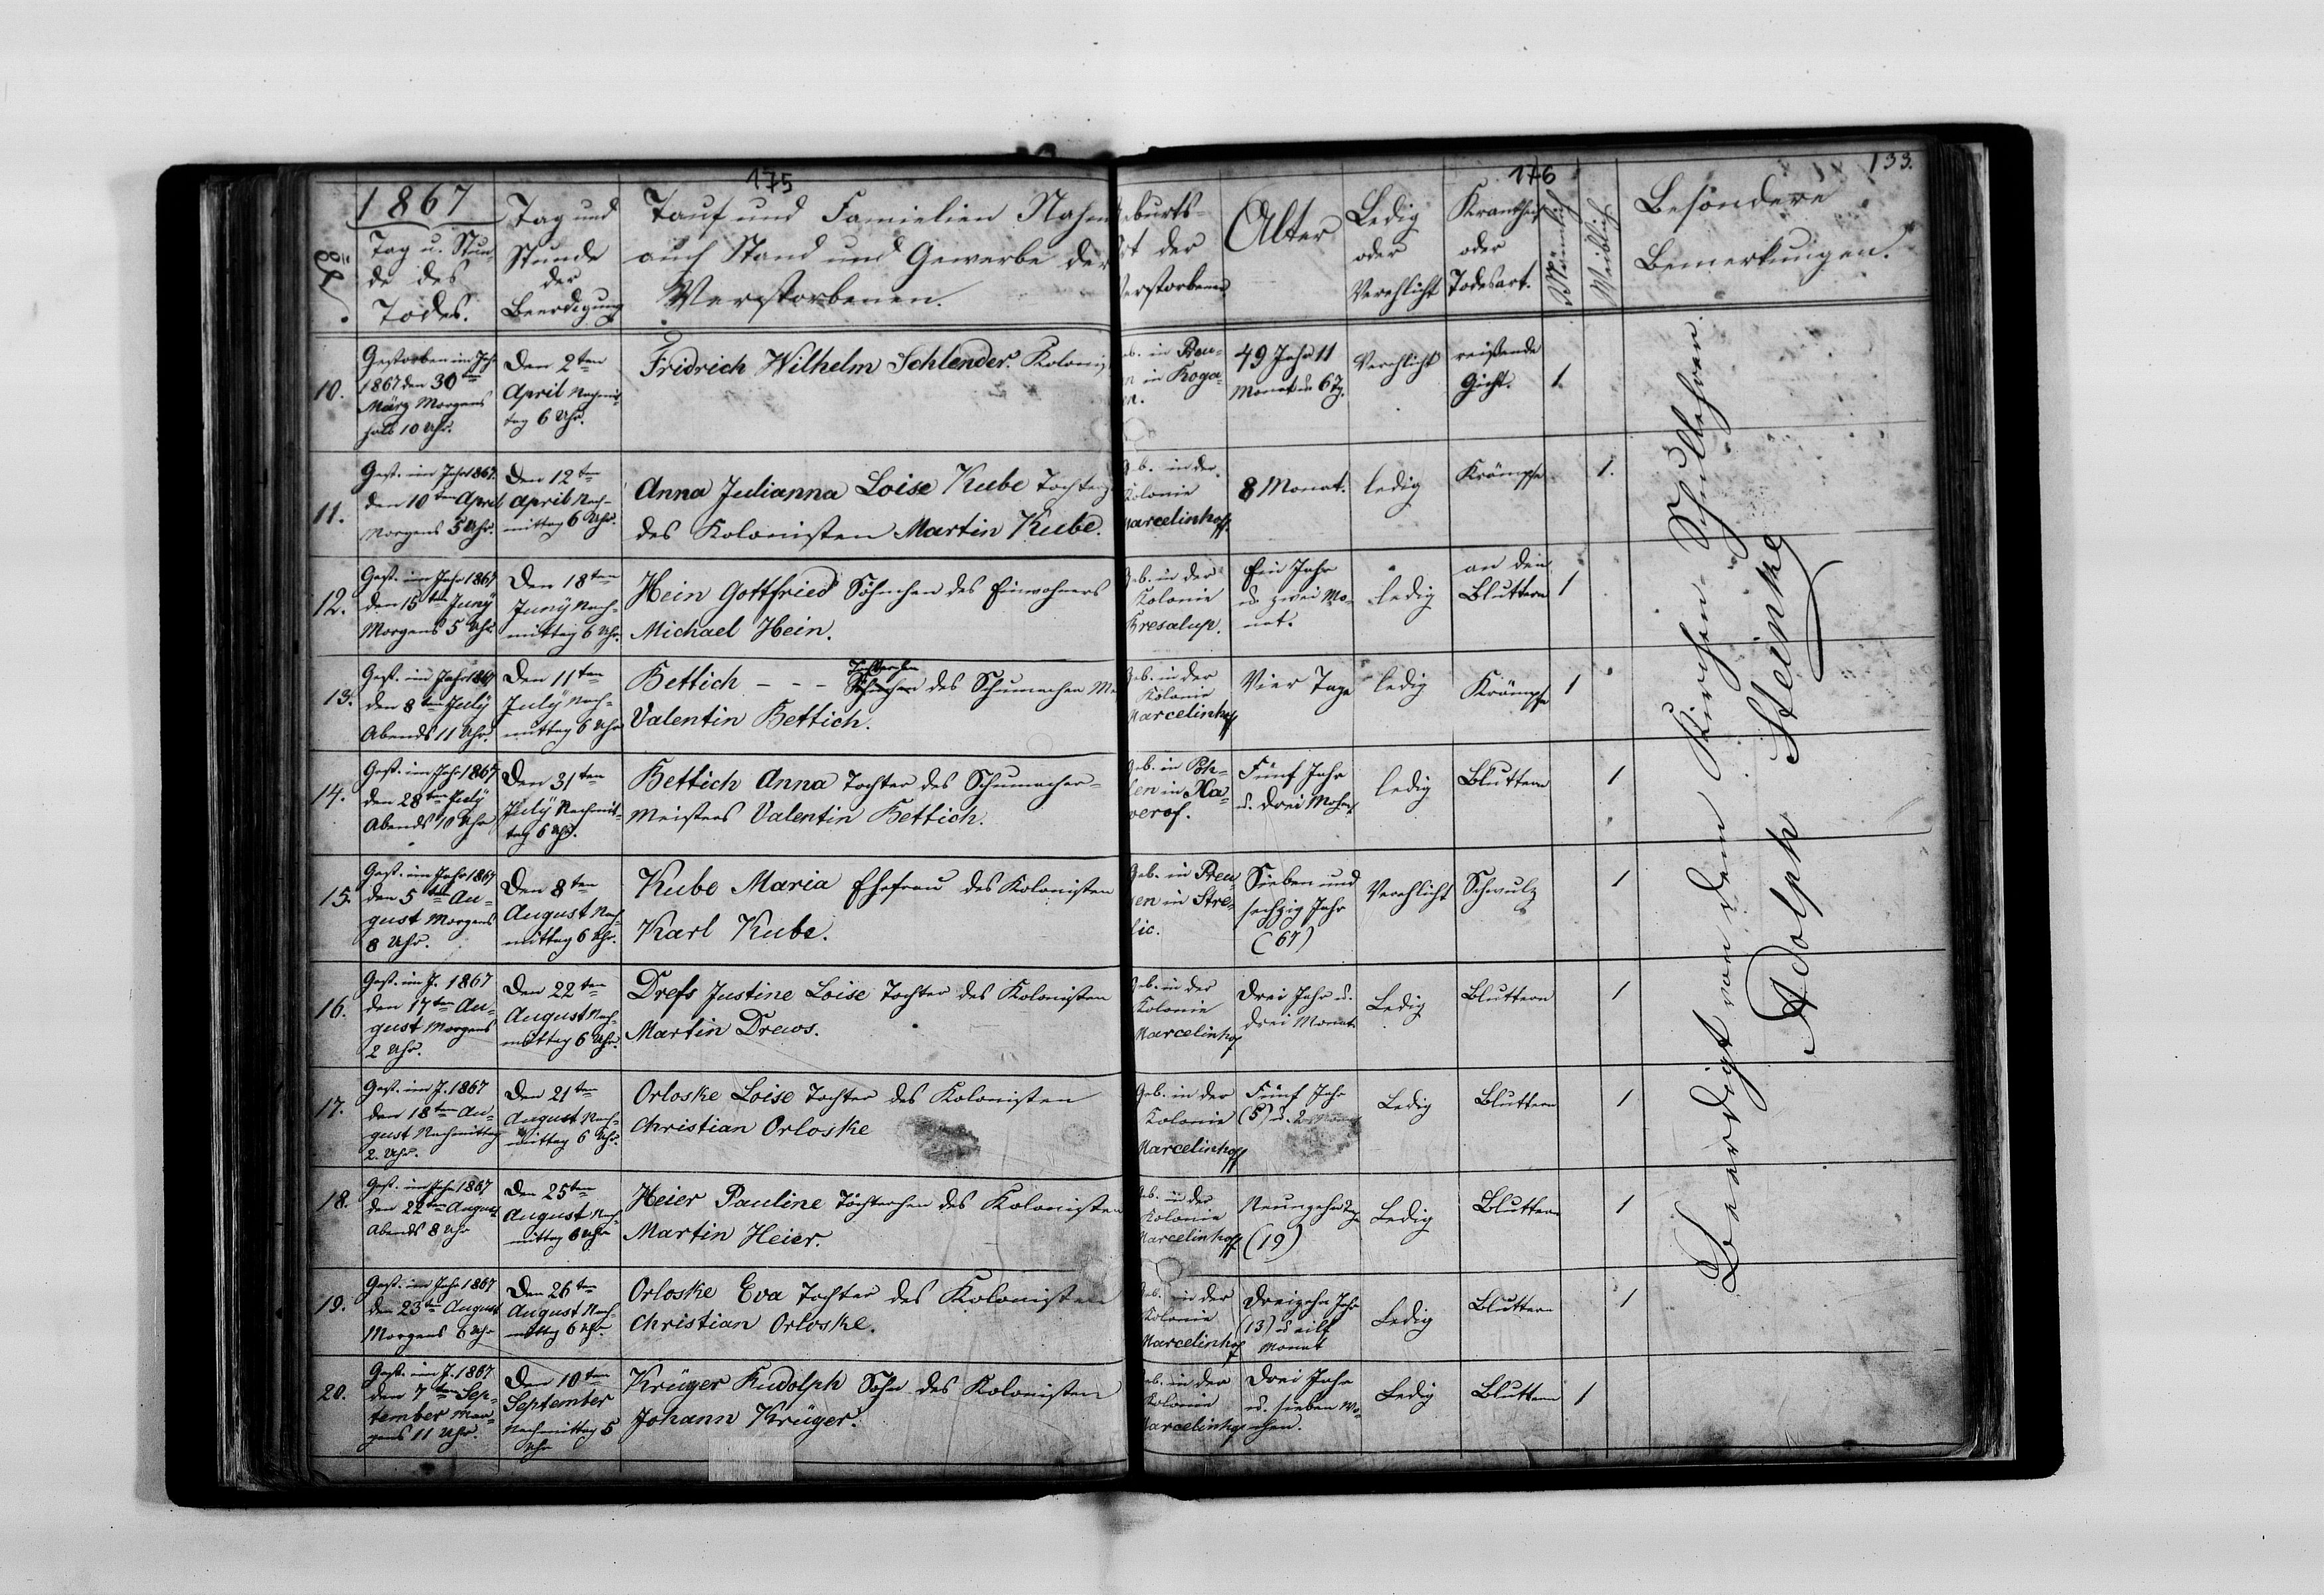 175
176
133.
1867
Tag u. Stun
de des
Todes.
Tag und
Stunde
der
Beerdigung
Tauf und Familien Nahm
auch Stand und Gewerbe der
Verstorbenen.
eburts=
rt der
erstorbenen
Alter
Ledig
oder
Verehlicht
Krankheit
oder
Todesart.
Männlich
Weiblich
Besondere
Bemerkungen.
10.
Gestorben im Jahr
1867 den 30ten
März Morgens
halb 10 Uhr.
Den 2ten
April Nachmit
tag 6 Uhr.
Fridrich Wilhelm Schlender. Kolonis
b. in Preu=
n in Koga=
en.
49 Jahr 11
Monat u. 6 Tg.
Verehlicht
reißende
Gicht.
1.
11.
Gest. im Jahr 1867
den 10ten April
Morgens 5 Uhr.
Den 12ten
April Nach=
mittag 6 Uhr.
Anna Julianna Loise Kube Tochter
des Kolonisten Martin Kube.
Geb. in der
Kolonie
Marcelinhoff
8 Monat.
ledig
Krämpfe
1.
12.
Gest. im Jahr 1867
den 15ten Juny
Morgens 5 Uhr.
Den 18ten
Juny Nach=
mittag 6 Uhr.
Hein Gottfried Söhnchen des Einwohners
Michael Hein.
Geb. in der
Kolonie
Kresalup.
Ein Jahr
u. zwei Mo=
nat.
ledig
an den
Bluttern
1
13.
Gest. im Jahr 1867
den 8ten July
Abends 11 Uhr.
Den 11ten
July Nach=
mittag 6 Uhr
Bettich - - - Töchterchen
Söhnchen des Schumacher Me
Valentin Bettich.
Geb. in der
Kolonie
Marcelinhoff
Vier Tage
ledig
Krämpfe
1
14.
Gest. im Jahr 1867
den 28ten July
Abends 10 Uhr
Den 31ten
July Nachmit=
tag 6 Uhr.
Bettich Anna Tochter des Schumacher=
meisters Valentin Bettich.
Geb. in Poh=
len in Xa=
verof.
Fünf Jahr
u. drei Mohnat
ledig
Bluttern
1
15.
Gest. im Jahr 1867
den 5ten Au=
gust Morgens
8 Uhr.
Den 8ten
August Nach=
mittag 6 Uhr.
Kube Maria Ehefrau des Kolonisten
Karl Kube.
Geb. in Preu
en in Stre=
lic.
Sieben und
sechzig Jahr
(67)
Verehlicht
Schwulz
1
16.
Gest. im J. 1867
den 17ten Au=
gust Morgens
2 Uhr.
Den 22ten
August Nach=
mittag 6 Uhr.
Drefs Justine Loise Tochter des Kolonisten
Martin Drews.
Geb. in der
Kolonie
Marcelinhof
Drei Jahr u.
drei Monat
Ledig
Bluttern
1
17.
Gest. im J. 1867
den 18ten Au=
gust Nachmittag
2. Uhr.
Den 21ten
August Nach=
mittag 6 Uhr.
Orloske Loise Tochter des Kolonisten
Christian Orloske
Geb. in der
Kolonie
Marcelinhoff
Fünf Jahr
(5) u. 2
Ledig
Bluttern
1
18.
Gest. im Jahr 1867
den 22ten August
Abends 8 Uhr
Den 25ten
August Nach=
mittag 6 Uhr
Heier Pauline Töchterchen des Kolonisten
Martin Heier.
Geb. in der
Kolonie
Marcelinhoff
Neunzehn Tg.
(19)
Ledig
Bluttern
1
19.
Gest. im Jahr 1867
den 23ten August
Morgens 6 Uhr
Den 26ten
August Nach
mittag 6 Uhr.
Orloske Eva Tochter des Kolonisten
Christian Orloske.
Geb. in der
Kolonie
Marcelinhof
Dreizehn Jahr
(13) u eilf
Monat
Ledig
Bluttern
1
20.
Gest. im J. 1867
den 7ten Sep=
tember Mor=
gens 11 Uhr.
Den 10ten
September
Nachmittag 5
Uhr
Krüger Rudolph Sohn des Kolonisten
Johann Krüger.
Geb. in der
Kolonie
Marcelinhof
Drei Jahr
u. sieben Wo=
chen.
Ledig
Bluttern
1
Beerdigt von dem Kirchen Schullehrer.
Adolph Steinke